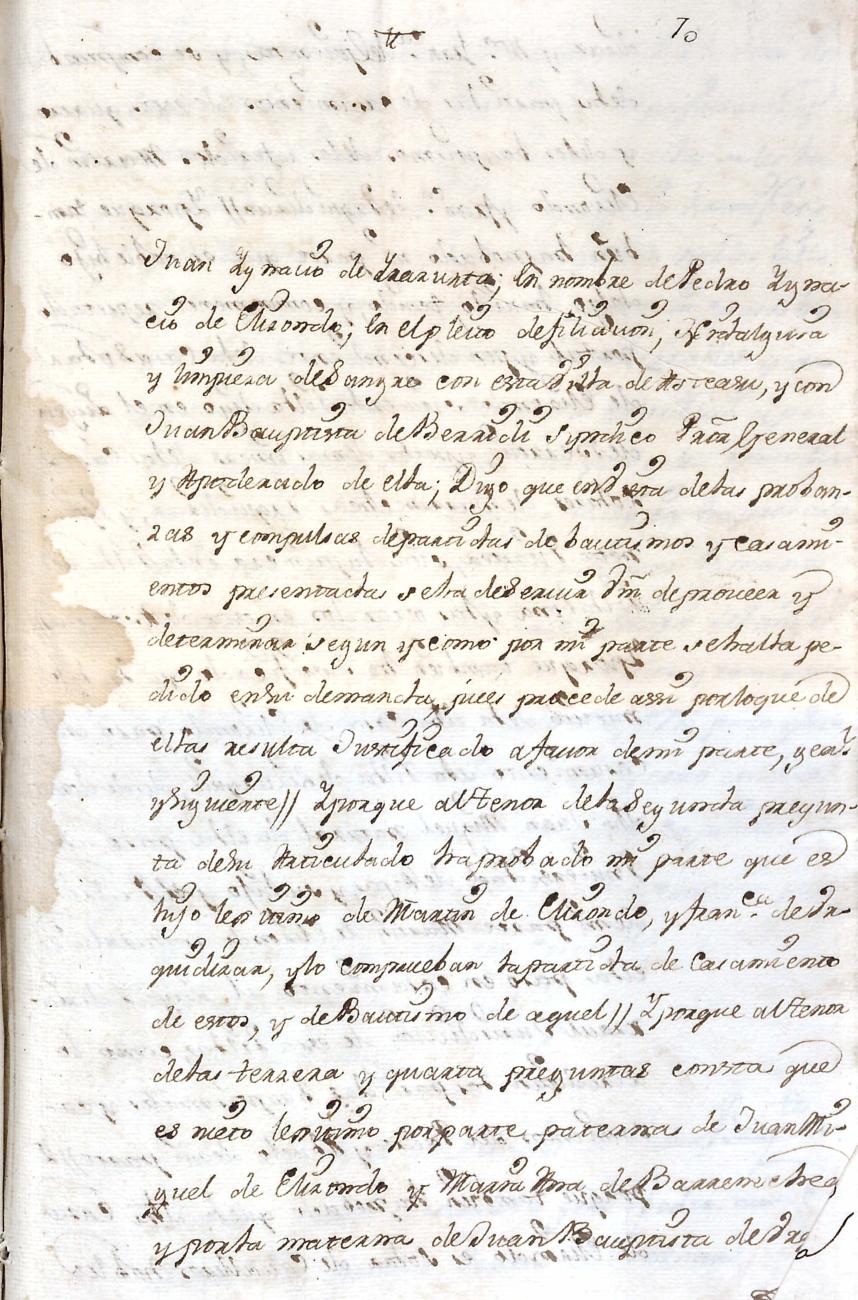 70
Juan Ygnacio de Yrarunta; En nombre de Pedro Ygna-
cio de Elizondo; En el pleito de filiación, Hydalguia
y limpieza de Sangre con esta Villa de Asteasu, y con
Juan Bauptista de Berridi Syndico Pror General
y Apoderado de ella; Digo que en Vista de las proban-
zas y compulsas de partidas de bautismos y casami-
entos presentadas se ha de servir Vm de proveer y
determinar segun y como por mi parte se halla pe-
dido en su demanda, pues procede assi por lo que de
ellas resulta Justificado a favor de mi parte, y
y siguiente // Y porque al tenor de la Segunda pregun-
ta de su Articulado ha probado mi parte que es
hijo lexitimo de Martin de Elizondo, y Franca de Yr-
quidizar, y lo comprueban la partida de Casamiento
de estos, y de Bautismo de aquel // Y porque al tenor
de las terzera y quarta preguntas consta que
es nieto lexitimo por parte paterna de Juan Mi-
guel de Elizondo y Maria Ana de Barrenechea
y por la materna de Juan Bauptista de